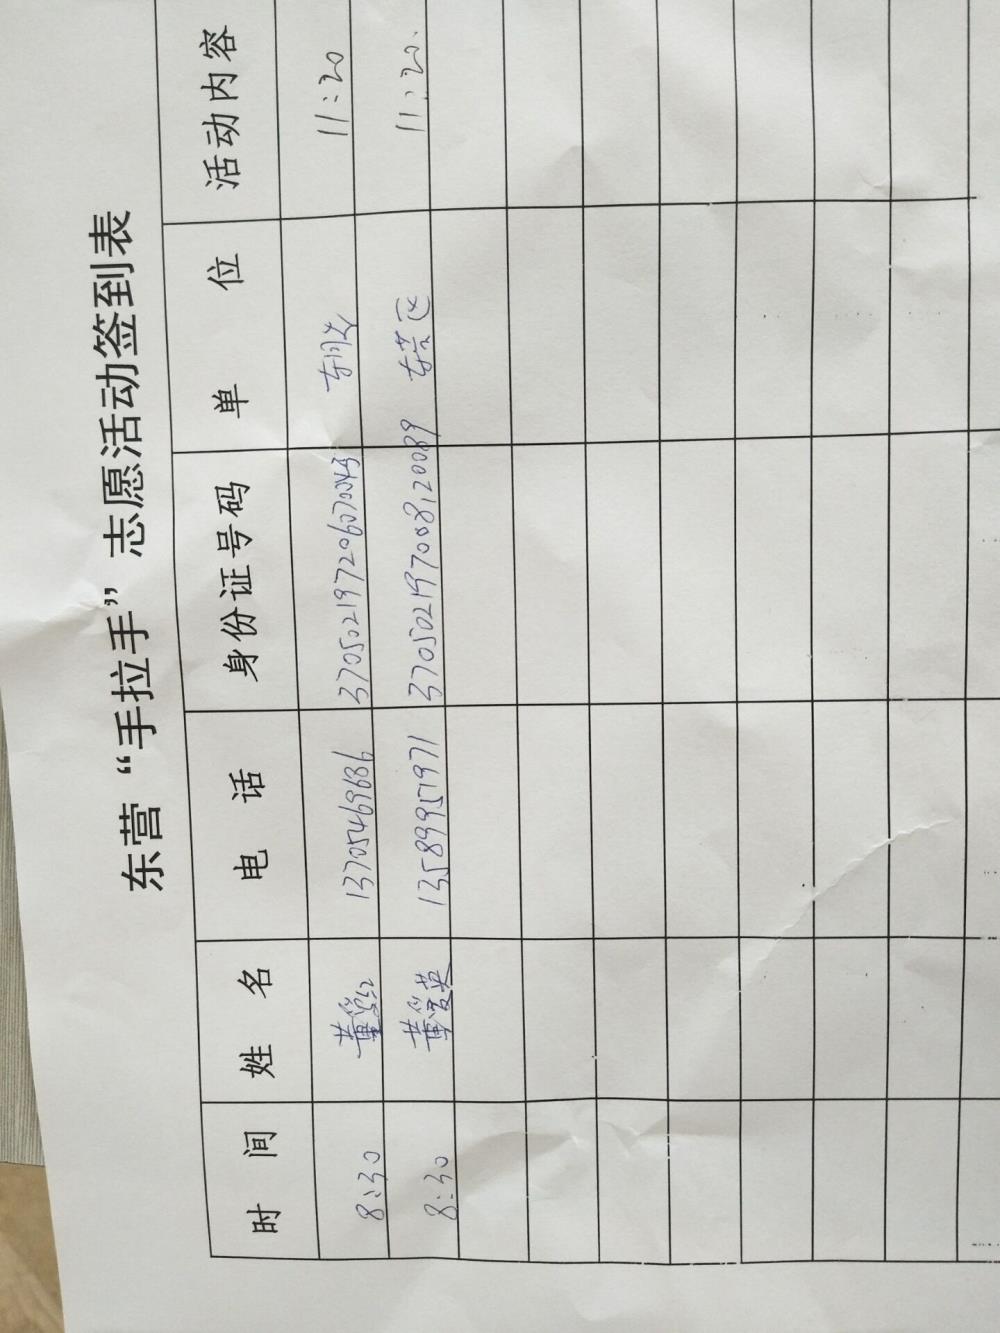 东营“手拉手”志愿活动签到表
时间 姓名 电话 身份证号码 单位 活动内容
8:30 董爱红 13705469686 370502197206070043 11:20
8:30 董爱英 13589957971 370502197008120089 东营区 11:20.